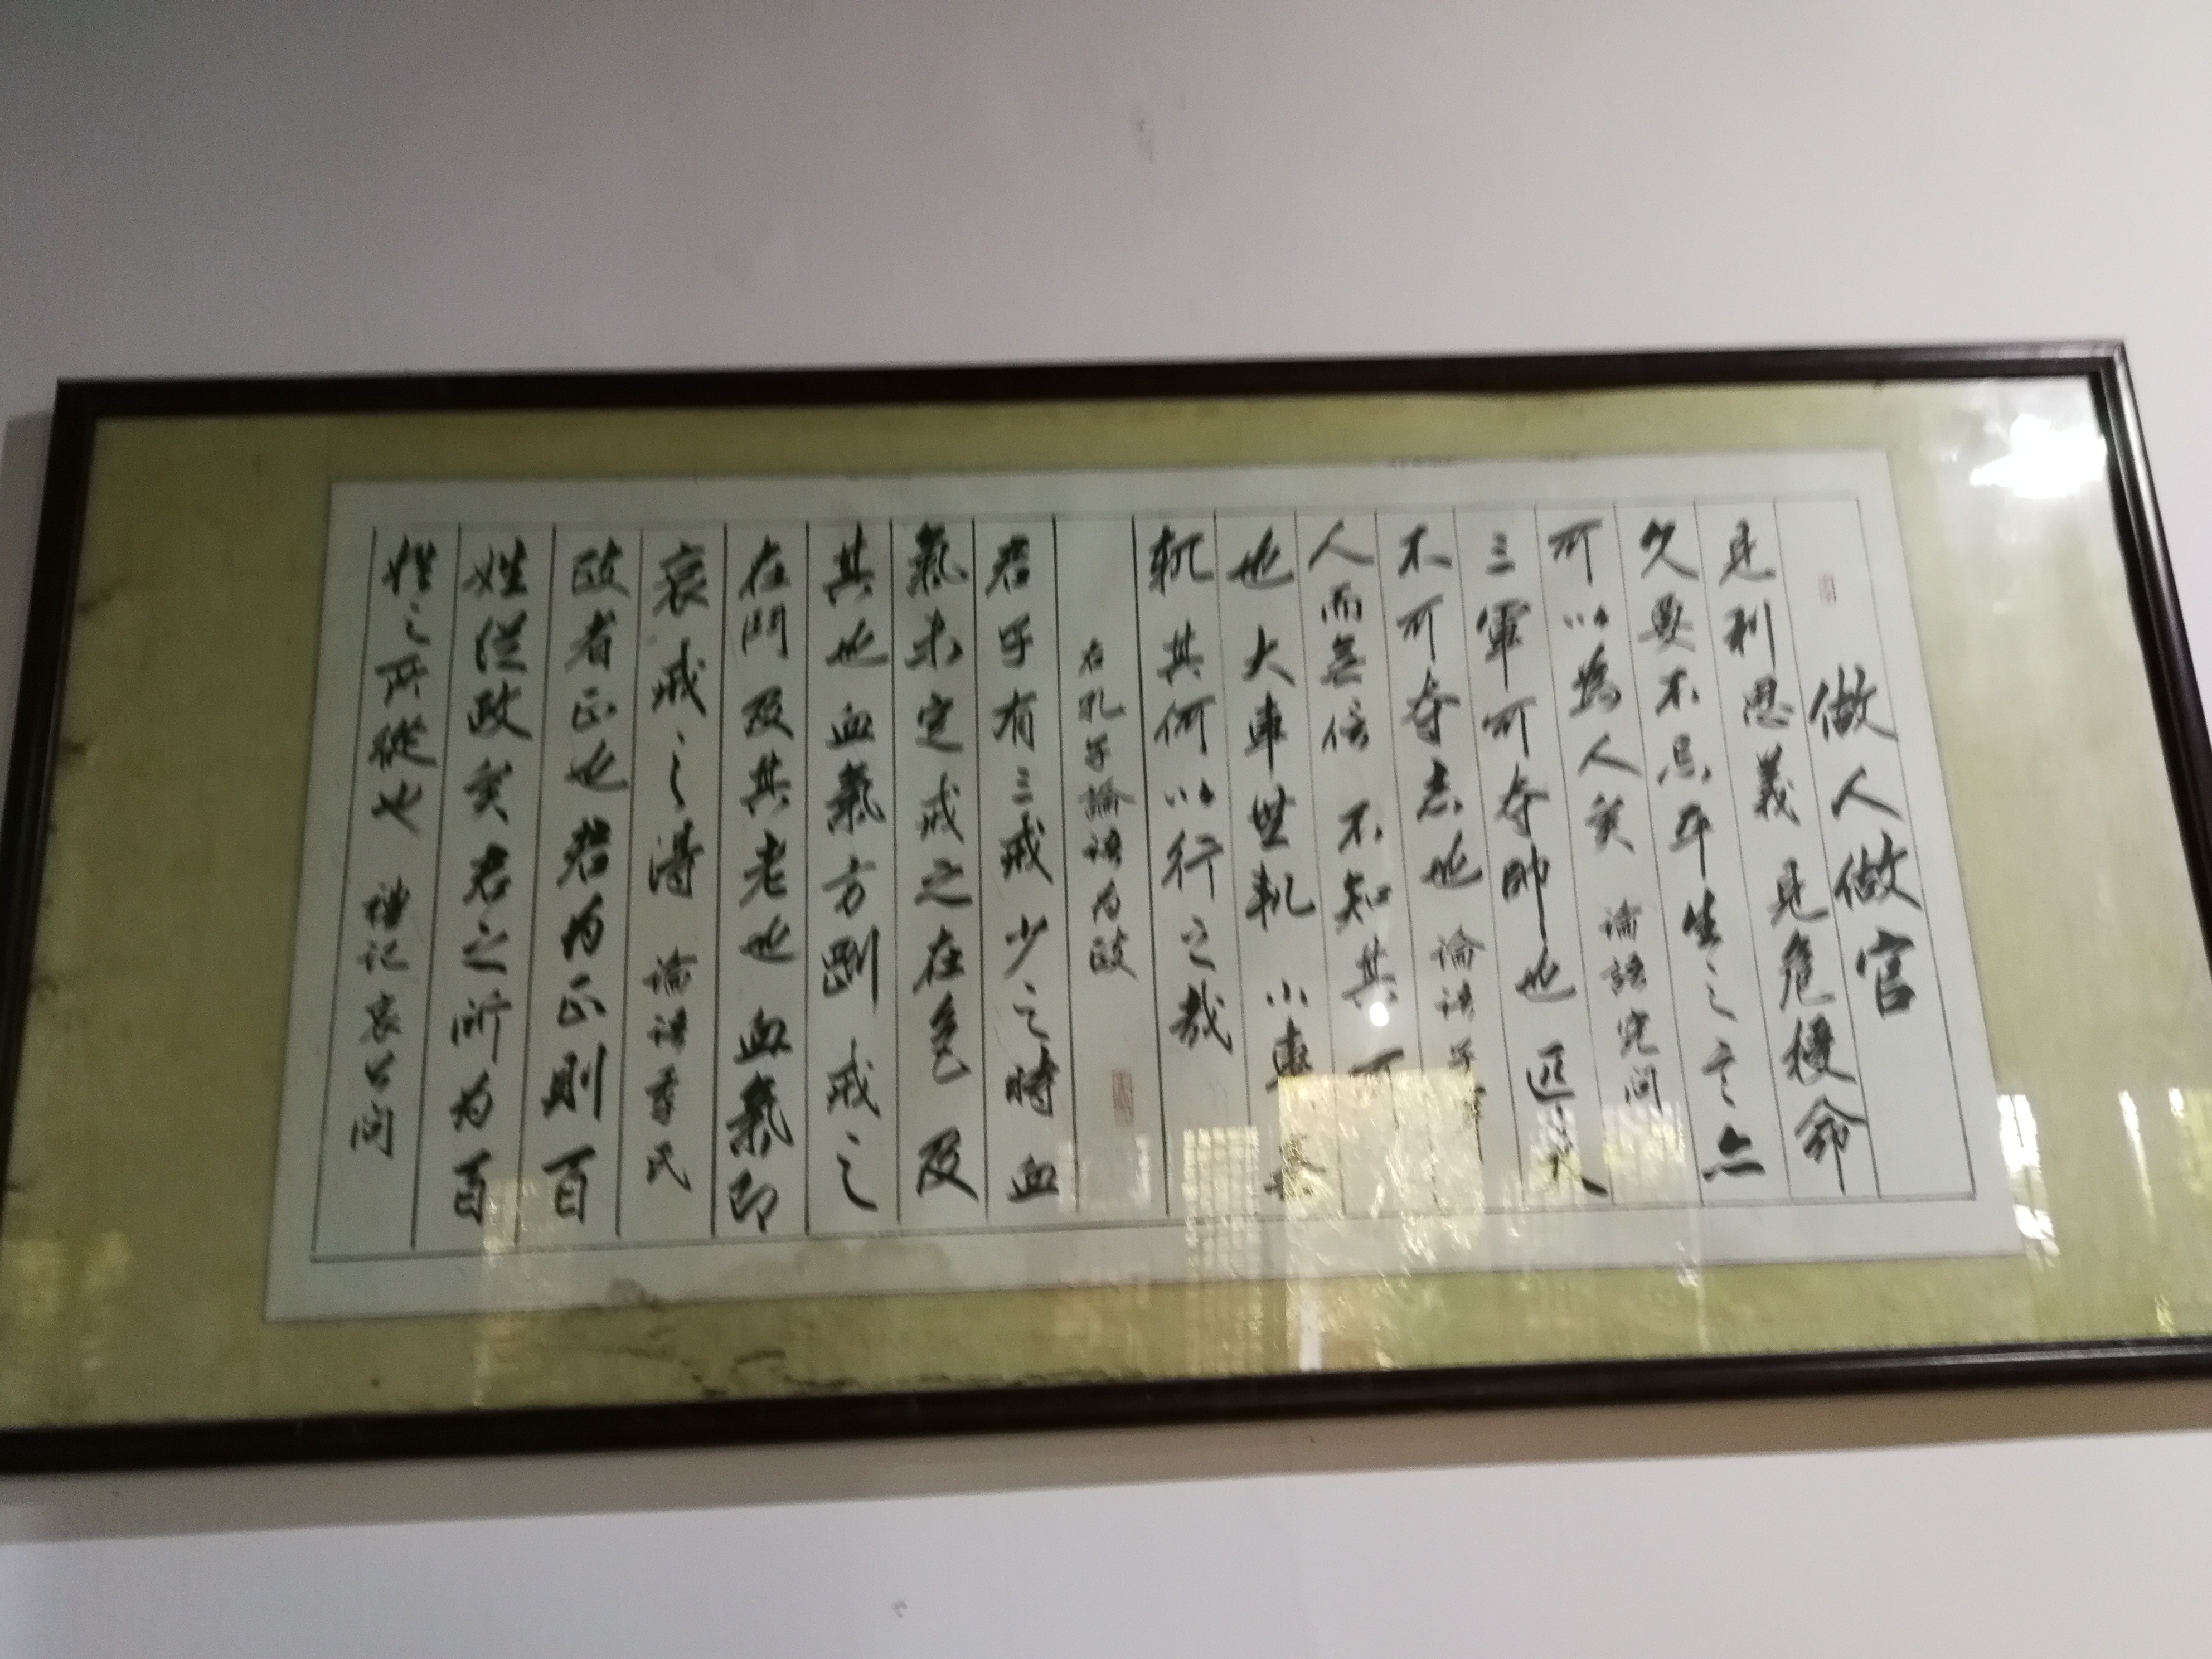 做人做官
見利思義見危授命
久要不忘平生之言亦
可以為人矣 論語宪问
三軍可夺帥也匹夫
不可夺志也 論語子
人而無信不知其可
也大車無軏小車無
軏其何以行之哉
右孔子論語为政
君子有三戒少之時血
氣未定戒之在色及
其也血氣方剛戒之
在鬥及其老也血氣即
衰戒之之得 論語季氏
政者正也君为正則百
姓從政矣君之所为百
姓之所從也 禮记哀公问